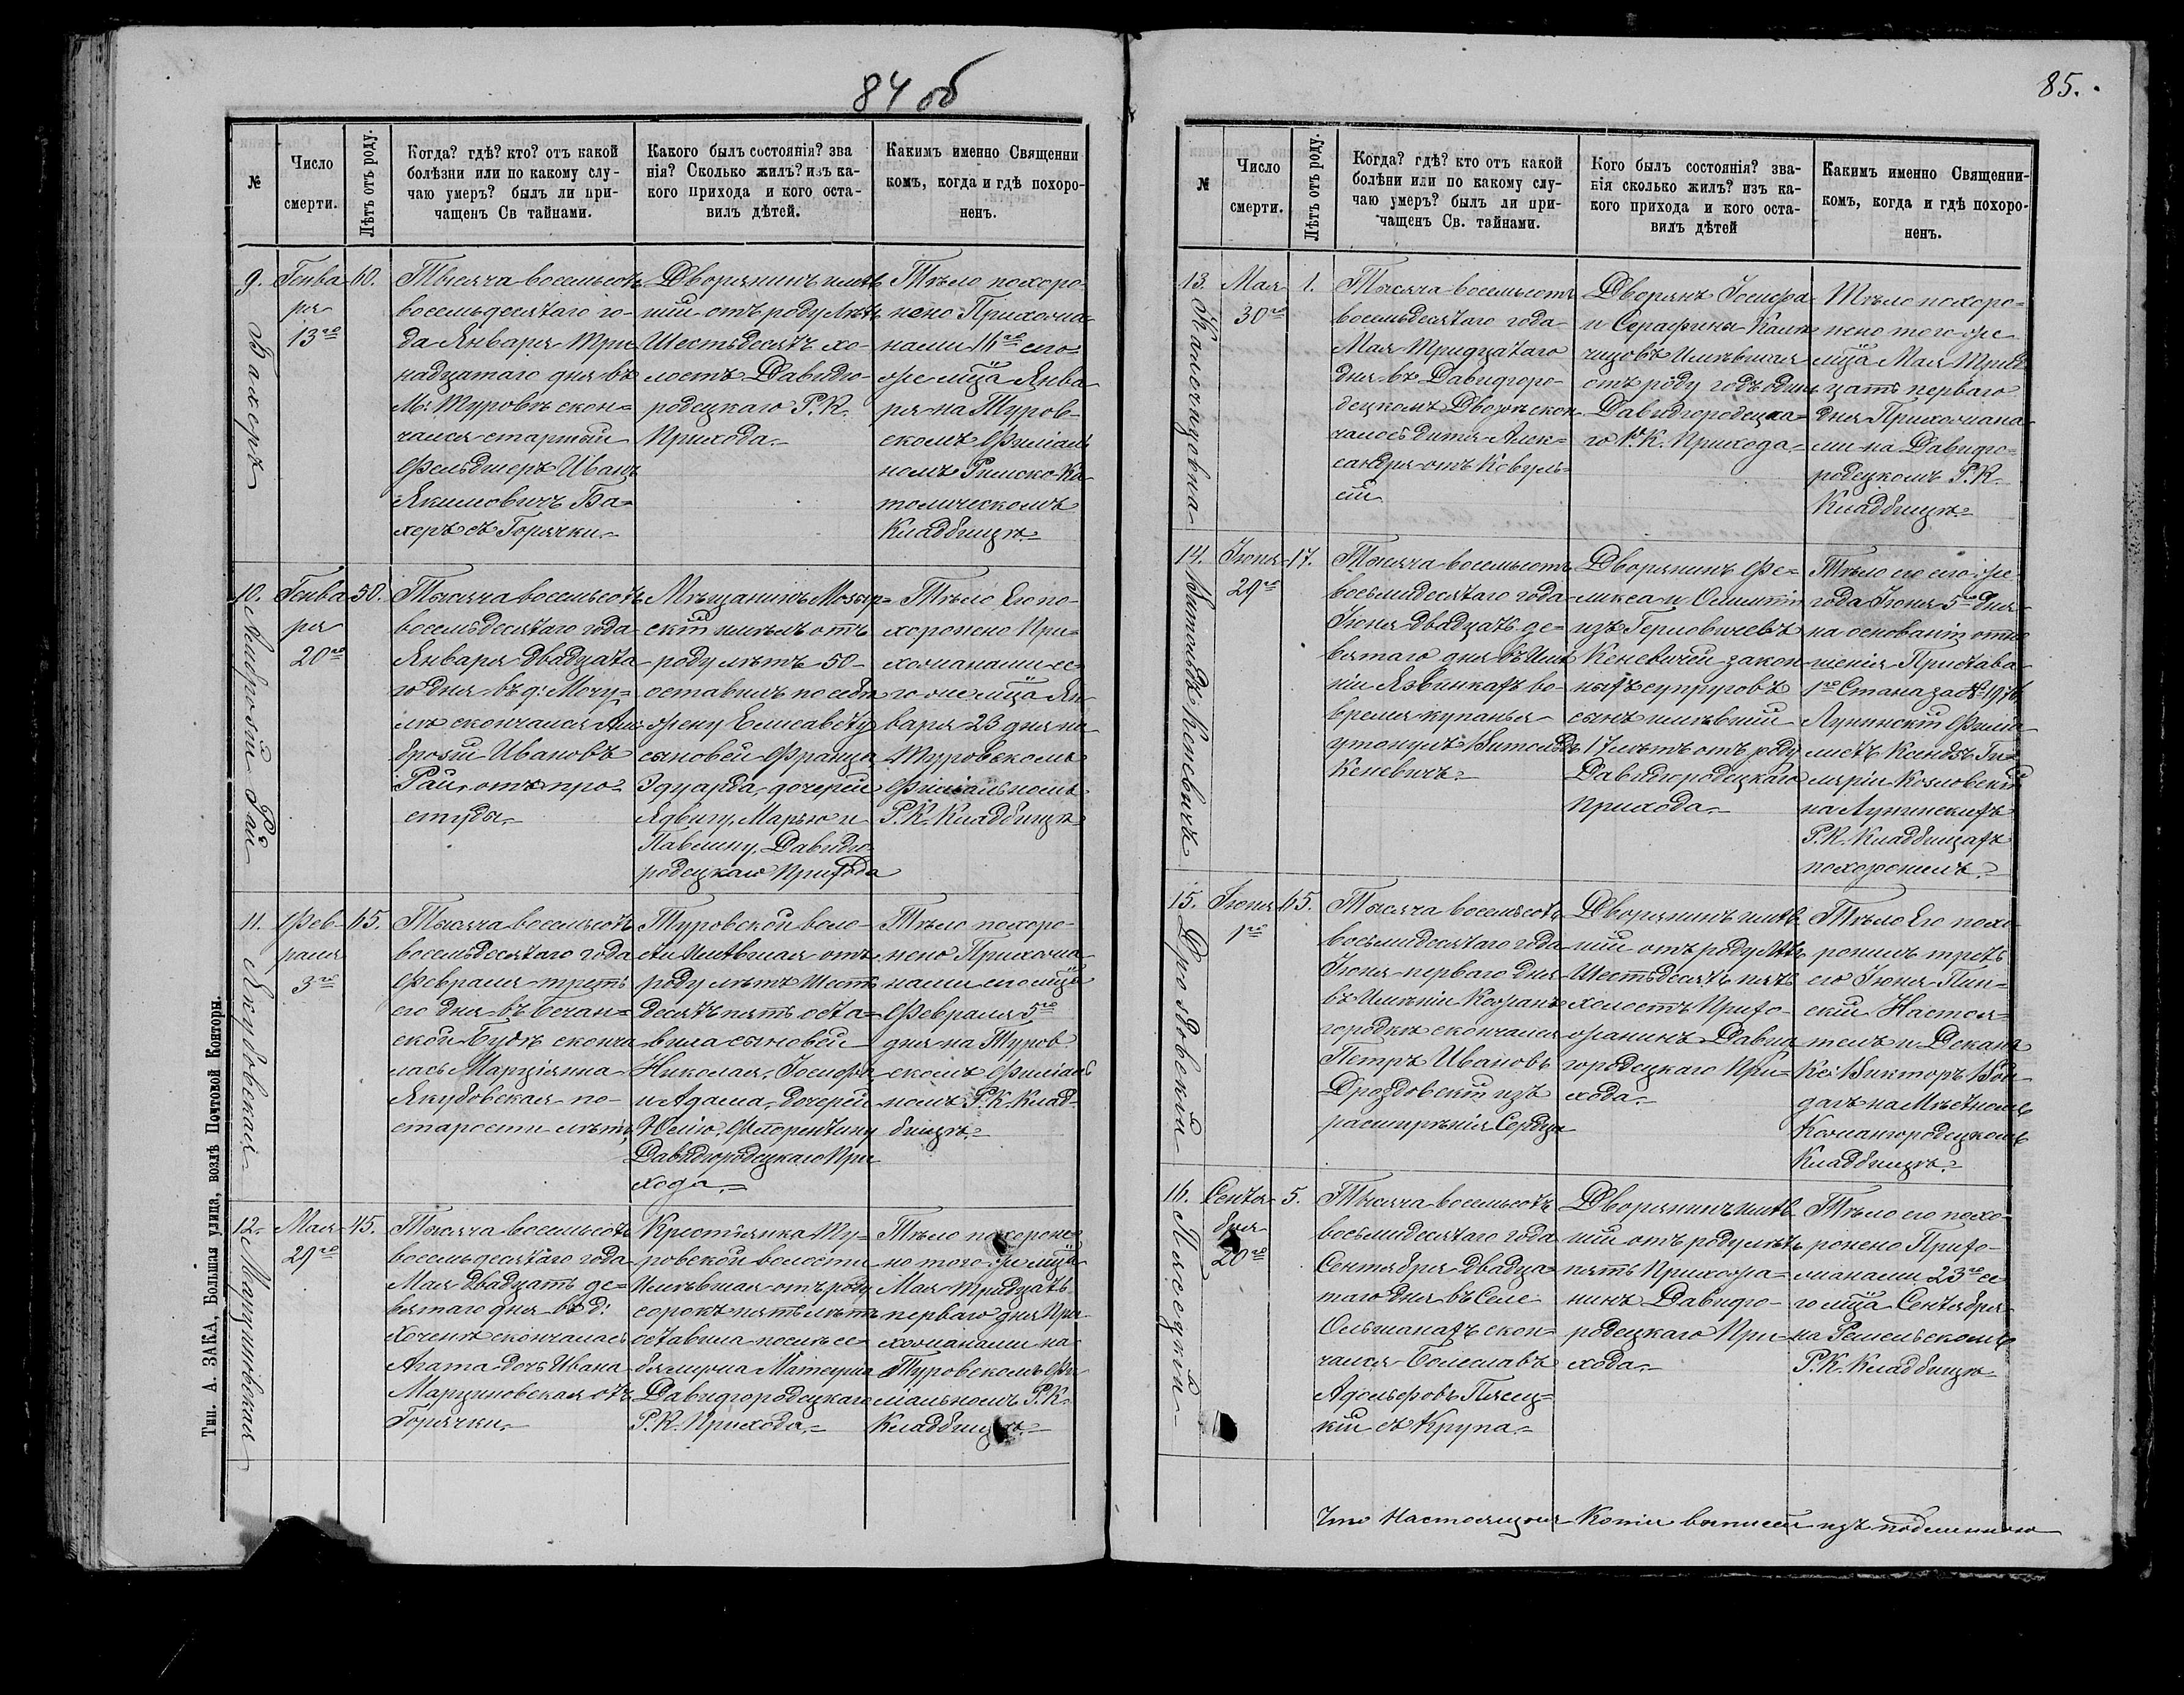 84 об
№
Число
смерти.
Лѣтъ отъ роду.
Когда? гдѣ? кто? отъ какой
болѣзни или по какому слу-
чаю умеръ? былъ ли при-
чащенъ Св тайнами.
Какого былъ состоянія? зва
нія? Сколько жилъ? изъ ка-
кого прихода и кого оста-
вилъ дѣтей.
Какимъ именно Священни
комъ, когда и гдѣ похоро-
ненъ.
9.
Бахеръ
Генва
ря
13го
60.
Тысяча восемьсотъ
восемьдесятаго го-
да Января Три
надцатаго дня въ
М: Туровѣ скон=
чался старшій
Фельдшеръ Иванъ
Якимовичъ Ба=
херъ съ Горячки.
Дворянинъ имѣв
шій отъ роду лѣтъ
Шестьдесятъ хо-
лостъ Давидго-
родецкаго Р.К.
Прихода.
Тѣло похоро
нено Прихожа
нами 16го сего
же мца Янва
ря на Туров-
скомъ Филіаль
номъ Римско-Ка
толическомъ
Кладбищѣ=
10.
Амброзій Рай
Генва
ря
20го
50.
Тысяча восемьсотъ
восемьдесятаго года
Января двадцата
го дня въ д: Мочу=
лѣ скончался Ам
брозій Ивановъ
Рай, отъ про=
студы.
Мѣщанинъ Мозыр=
скій имѣлъ отъ
роду лѣтъ 50-
оставилъ по себѣ
жену Елисавету
сыновей Франца
Эдуарда, дочерей
Ядвигу, Марью и
Павлину, Давидго
родецкаго Прихода
Тѣло Его по-
хоронено При=
хожанами се
го же мца Ян
варя 23 дня на
Туровскомъ
Филіальномъ
Р.К. Кладбищѣ
11.
Якубовская
Фев-
раля
3го
65.
Тысяча восемьсотъ
восемьдесятаго года
Февраля треть
его дня въ Бечан=
ской Будѣ сконча
лась Марціянна
Якубовская по-
старости лѣтъ,
Туровской воло-
сти Имѣвшая отъ
роду лѣтъ Шесть
десятъ пять оста=
вила сыновей
Николая, Іосифа,
и Адама, дочерей
Юлію, Флорентину
Давидгородецкаго При
хода.=
Тѣло похоро-
нено Прихожа
нами сего мца
Февраля 5го
дня на Туров
скомъ Филіаль
номъ Р.К. Клад
бищѣ.=
12.
Марциновская
Мая
29го
45.
Тысяча восемьсотъ
восемьдесятаго года
Мая двадцать де=
вятаго дня въ д:
Хоченѣ скончалась
Агата дочь Ивана
Марциновская отъ
Горячки.
Крестьянка Ту=
ровской волости
Имѣвшая отъ роду
сорокъ пять лѣтъ
оставила послѣ се-
бя мужа Матеуша
Давидгородецкаго
Р.К. Прихода.=
Тѣло похороне
но того же мца
Мая тридцать
перваго дня При
хожанами на
Туровскомъ Фи
ліальномъ Р.К.
Кладбищѣ=
Тип. А. ЗАКА, Большая улица, возлѣ Почтовой Конторы.
85.
№
Число
смерти.
Лѣтъ отъ роду.
Когда? гдѣ? кто отъ какой
болѣни или по какому слу-
чаю умеръ? былъ ли при-
чащенъ Св. тайнами.
Кого былъ состоянія? зва-
нія сколько жилъ? изъ ка-
кого прихода и кого оста-
вилъ дѣтей
Какимъ именно Священни-
комъ, когда и гдѣ похоро-
ненъ.
13.
Мая
30го
1.
Тысяча восемьсотъ
восемьдесятаго года
Мая Тридцатаго
дня въ Давидгоро-
децкомъ Дворѣ скон
чалось дитя Алек=
сандра отъ Ковуль=
сіи
Дворянъ Іосифа
и Серафины
Имѣвшая
отъ роду годъ одинъ
Давидгородецка=
го Р.К. Прихода.
Тѣло похоро=
нено того же
мца Мая Трид
цать перваго
дня Прихожана
ми на Давидго=
родецкомъ Р.К.
Кладбищѣ=
14.
Витольдъ Кеневичъ
Іюня
29го
17.
Тысяча восемьсотъ
восьмидесятаго года
Іюня двадцать де=
вятаго дня въ Имѣ
ніи Язвинкахъ во-
время купанья
утонулъ Витольдъ
Кеневичъ=
Дворянинъ Фе=
ликса и Олимпіи
изъ Герловичевъ
Кеневичей закон
ныхъ супруговъ
сынъ имѣвшій
17 лѣтъ отъ роду
Давидгородецкаго
прихода.
Тѣло его сего же
года Іюня 5го дня
на основаніи отно
шенія Пристава
1го Стана за №
Лунинскій Филіа
листъ Ксендзъ Ги=
лярій Козловскій
на Лунинскихъ
Р.К. Кладбищахъ
похоронилъ.
15.
Дроздовскій
Іюня
1го
65.
Тысяча восемьсотъ
восьмидесятаго года
Іюня перваго дня
въ Имѣніи Кожанъ
городкѣ скончался
Петръ Ивановъ
Дроздовскій изъ
расширѣнія Сердца
Дворянинъ имѣв
шій отъ роду лѣтъ
Шестьдесятъ пять
холостъ Прихо-
жанинъ Давид
городецкаго При=
хода.
Тѣло Его похо
ронилъ треть
его Іюня Пин=
скій Настоя=
тель и Деканъ
Кс: Викторъ
на Мѣстномъ
Кожангородецкомъ
Кладбищѣ.=
16.
Пясецкій
Сентя-
бря
20го
5.
Тысяча восемьсотъ
восьмидесятаго года
Сентября двадца
таго дня въ Селе
Ольшанахъ скон=
чался Болеславъ
Адольфовъ Пясец=
кій съ Крупа.=
Дворянинъ имѣв
шій отъ роду лѣтъ
пять Прихожа=
нинъ Давидго-
родецкаго При-
хода.
Тѣло его похо-
ронено Прихо-
жанами 23го се
го мца Сентября
на Ремельскомъ
Р.К. Кладбищѣ
Что Настоящая Копія выписей изъ подлинною